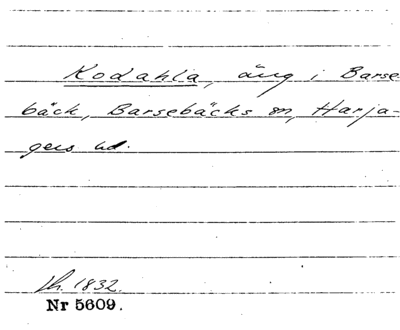 Kodahla, äng i Barse
bäck, Barsebäcks sn, Harja-
gers hd.
Th. 1832.
Nr 5609.